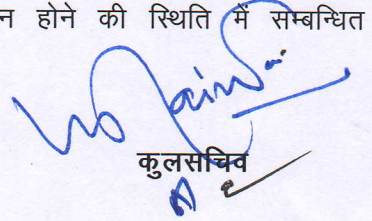 न होने की स्थिति में सम्बन्धित
कुलसचिव